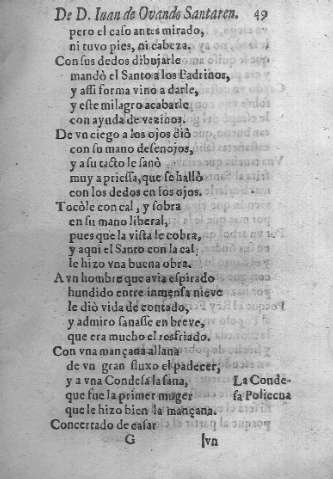 De D. Iuan de Ovando Santaren. 49
pero el caso antes mirado,
ni tuvo pies, ni cabeza.
Con sus dedos dibujarle
mandò el Santo a los Padrinos,
y assi forma vino a darle,
y este milagro acabarle
con ayuda de vezinos.
De vn ciego a los ojos diò
con su mano de senojos,
y a su tacto le sanò
muy a priessa, que se hallò
con los dedos en los ojos.
Tocòle con cal, y sobra
en su mano liberal,
pues que la vista le cobra,
y aqui el Santo con la cal
le hizo vna buena obra.
A vn hombre que avia espirado
hundido entre inmensa nieve
le diò vida de contado,
y admiro sanasse en breve,
que era mucho el resfriado.
Con vna mançana allana
de vn gran fluxo el padecer,
y a vna Condesa la sana, La Conde-
que fue la primer muger sa Policena
que le hizo bien la mançana.
Concertado de casar
G [vn